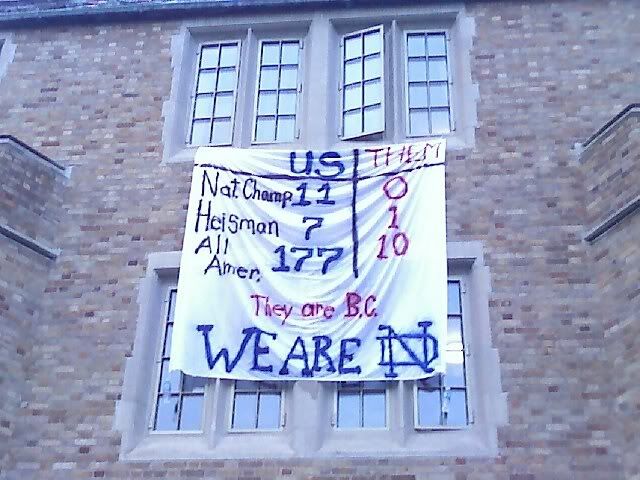 US THEM
Nat. Champ. 11 0
Heisman 7 1
All
Amer. 177 10
They are B.C.
WE ARE ND